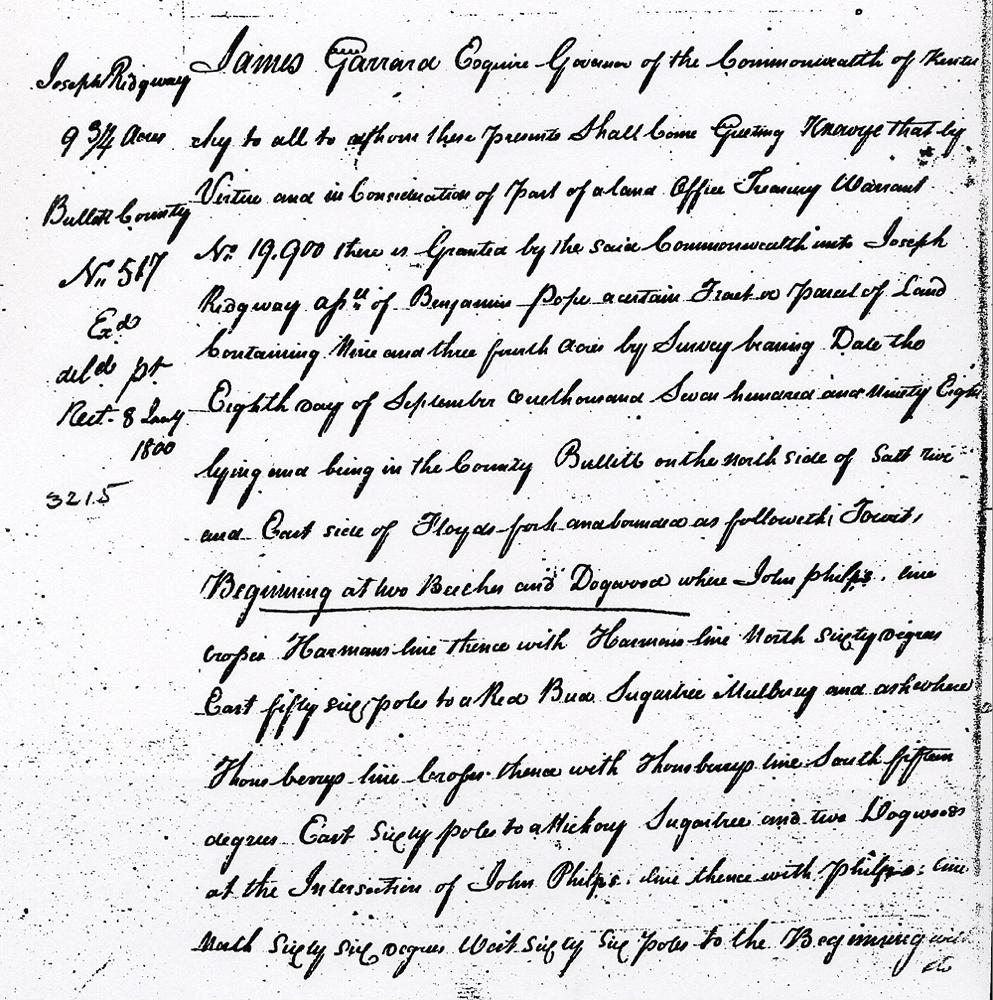 Joseph Ridgway
9 3/4 Acres
Bullitt County
No. 517
Exd
deld pt
Rect. 8 Jany
1800
3215
James Garrard Esquire Governor of the Commonwealth of Kentu
cky to all to whom these Presents Shall Come Greeting Know ye that by
Virtue and in Consideration of Part of a land Office Treasury Warrant
No. 19,900 there is Granted by the said Commonwealth unto Joseph
Ridgway assee of Benjamin Pope a certain Tract or Parcel of Land
Containing Nine and three fourth Acres by Survey bearing Date the
Eighth day of September one thousand Seven hundred and Ninety Eight
lying and being in the County Bullitt on the North side of Salt River
and East side of Floyds fork and bounded as followeth, Towit,
Beginning at two Beeches and Dogwood where John Philps. line
crosses Harmans line thence with Harmans line North sixty degrees
East fifty six poles to a Red Bud Sugartree Mulberry and ash where
Thons berrys line Crosses thence with Thonsberrys line South fifteen
degrees East Sixty poles to a Hickory Sugartree and two Dogwoods
at the Intersection of John Philps. line thence with Philps. line
North Sixty Six degrees West Sixty Six Poles to the Beginning with